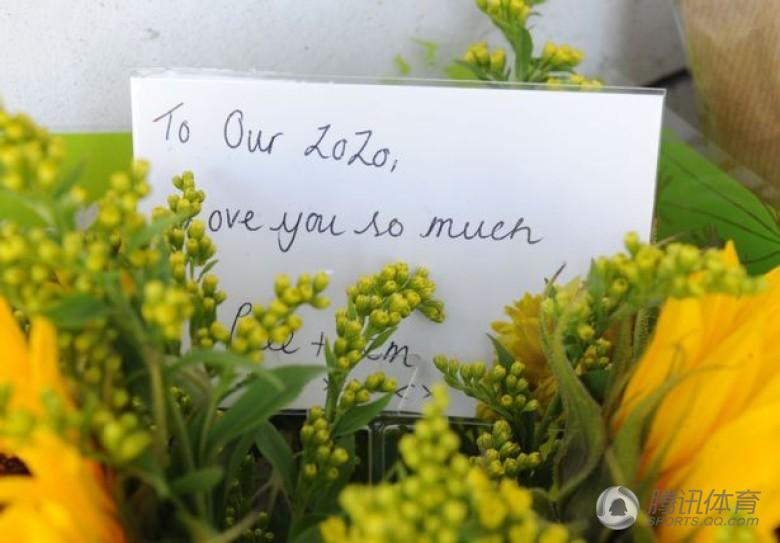 To Our ZoZo,
Love you so much
+
腾讯体育
SPORTS.QQ.COM